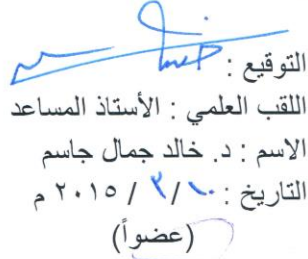 التوقيع :
اللقب العلمي : الأستاذ المساعد
الاسم : د. خالد جمال جاسم
التاريخ : ١٠ / ٢ / ٢٠١٥ م
(عضواً)